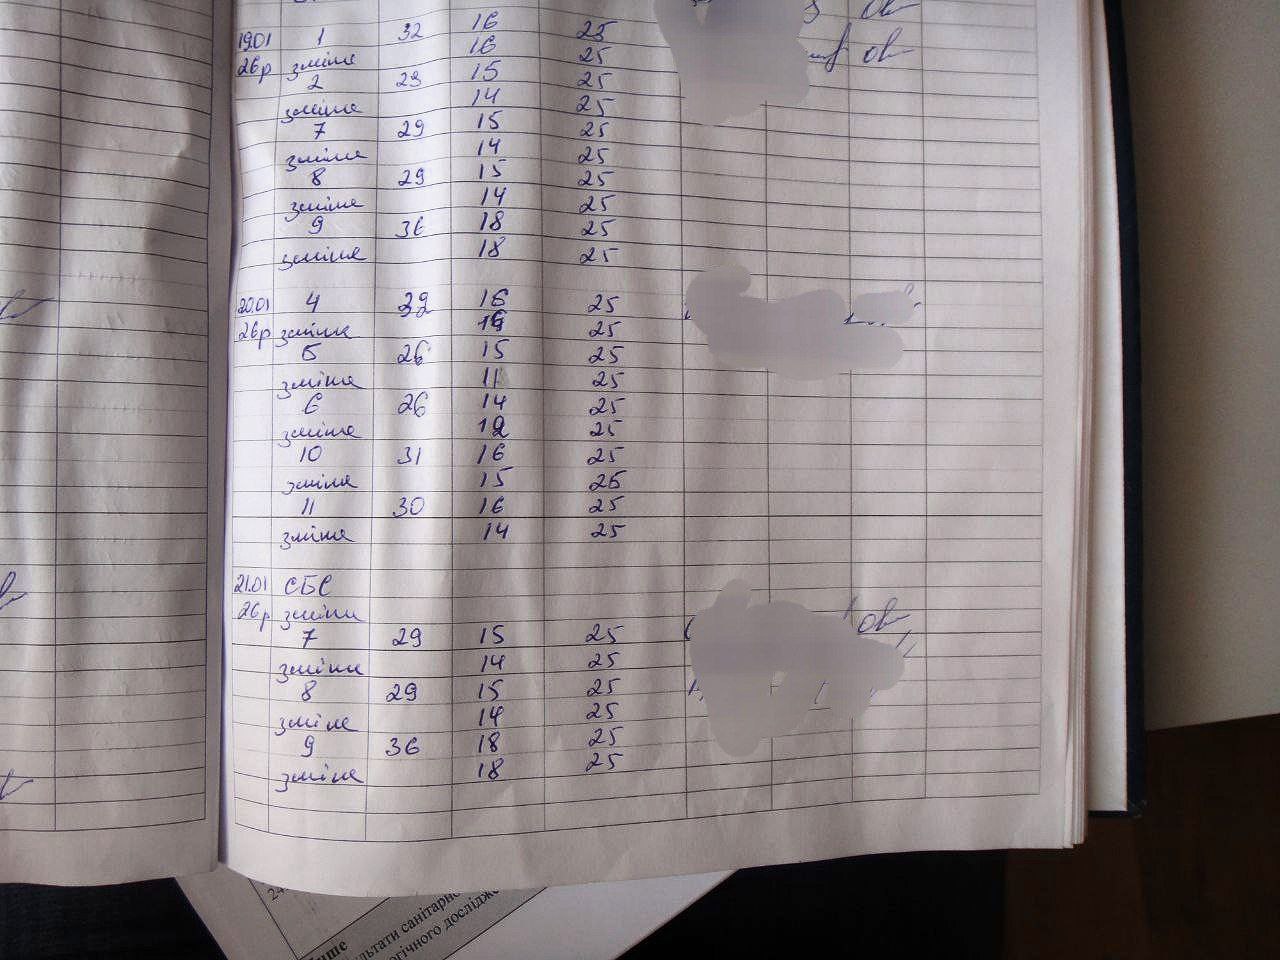 19.01 1 32 16 25
26р зміна 16 25
2 29 15 25
зміна 14 25
7 29 15 25
зміна 14 25
8 29 15 25
зміна 14 25
9 36 18 25
зміна 18 25
20.01 4 32 16 25
26р зміна 16 25
5 26 15 25
зміна 11 25
6 26 14 25
зміна 12 25
10 31 16 25
зміна 15 25
11 30 16 25
зміна 14 25
21.01 СБС
26р зміни
7 29 15 25
зміна 14 25
8 29 15 25
зміна 14 25
9 36 18 25
зміна 18 25